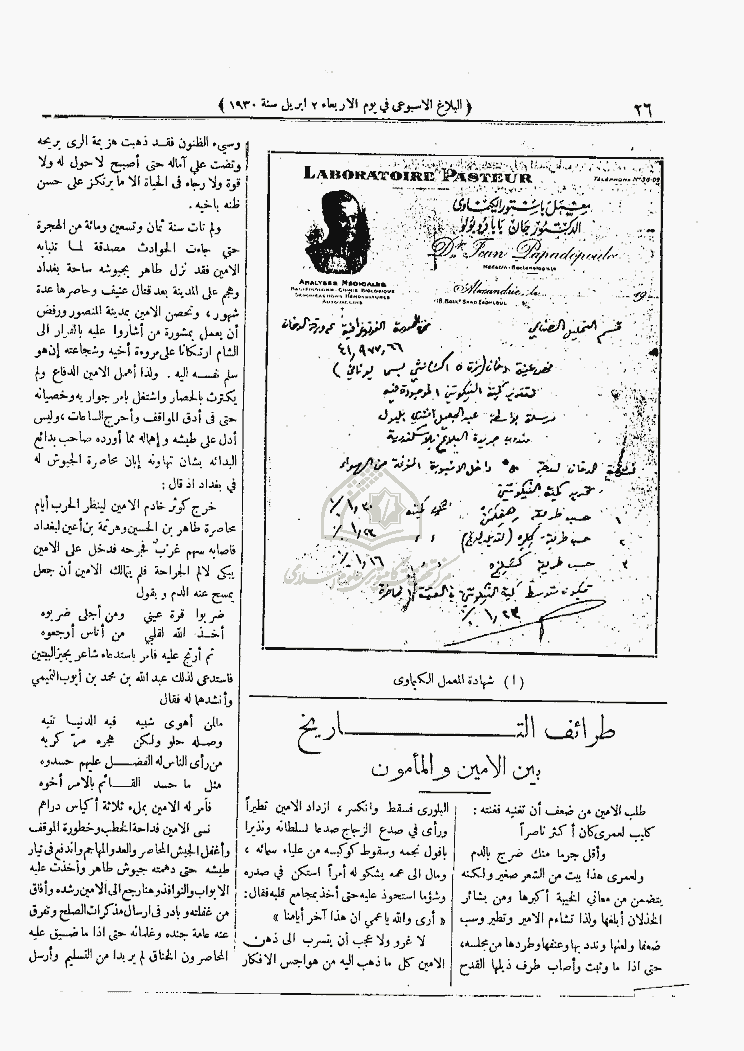 ٢٦
( البلاغ الاسبوعى في يوم الاربعاء ٢ ابريل سنة ١٩٣٠ )
LABORATOIRE PASTEUR
TÉLÉPHONE N°
معمل باستور الكيماوى
الدكتور جان بابادوبولو
Dr. Jean Papadopoulo
Médecin-Bactériologiste
ANALYSES MÉDICALES
Alexandrie, le
19
قسم التحليل الصناعى
لتقدير كمية النيكوتين الموجودة فيه
مندوب جريدة البلاغ بالاسكندرية
تقدير كمية النيكوتين
١
حسب طريقة
١٫٣٠ ٪
٢
حسب طريقة
١٫٢٣ ٪
٣
حسب طريقة
١٫١٦ ٪
١٫٢٣ ٪
( ا ) شهادة المعمل الكيماوى
طرائف التـــاريخ
بين الامين والمأمون
طلب الامين من ضعف أن تغنيه فغنته :
كليب لعمرى كان أكثر ناصراً
وأقل جرما منك ضرج بالدم
ولعمرى هذا بيت من الشعر صغير ولكنه
يتضمن من معاني الخيبة أكبرها ومن بشائر
الخذلان أبلغها ولذا تشاءم الامير وتطير وسب
ضعفا ولعنها وندد بها وعنفها وطردها من مجلسه،
حتى اذا ما وثبت وأصاب طرف ذيلها القدح
البلورى فسقط وانكسر ، ازداد الامين تطيراً
ورأى في صدع الزجاج صدعا لسلطانه ونذيرا
بافول نجمه وسقوط كوكبه من علياء سمائه ،
ومال الى عمه يشكو له أمراً استكن في صدره
وشؤما استحوذ عليه حتى أخذ بمجامع قلبه فقال:
« أرى والله ياعمي ان هذا آخر أيامنا »
لا غرو ولا عجب أن يتسرب الى ذهن
الامين كل ما ذهب اليه من هواجس الافكار
وسيء الظنون فقد ذهبت هزيمة الرى بريحه
وقضت على آماله حتى أصبح لا حول له ولا
قوة ولا رجاء فى الحياة الا ما يرتكز على حسن
ظنه باخيه .
ولم تأت سنة ثمان وتسعين ومائة من الهجرة
حتي جاءت الحوادث مصدقة لما تنبأ به
الامين فقد نزل طاهر بجيوشه ساحة بغداد
وهجم على المدينة بعد قتال عنيف وحاصرها عدة
شهور ، وتحصن الامين بمدينة المنصور ورفض
أن يعمل بمشورة من أشاروا عليه بالفرار الى
الشام ارتكانا على مروءة أخيه وشجاعته إن هو
سلم نفسه اليه . ولذا أهمل الامين الدفاع ولم
يكترث بالحصار واشتغل بامر جواريه وخصيانه
حتى فى أدق المواقف وأحرج الساعات ، وليس
أدل على طيشه وإهماله مما أورده صاحب بدائع
البدائه بشان تهاونه إبان محاصرة الجيوش له
في بغداد اذ قال :
خرج كوثر خادم الامين لينظر الحرب أيام
محاصرة طاهر بن الحسين وهرثمة بن أعين لبغداد
فاصابه سهم غرب فجرحه فدخل على الامين
يبكى لألم الجراحة فلم يتمالك الامين أن جعل
يمسح عنه الدم و يقول
ضربوا قرة عيني ومن أجلى ضربوه
أخذ الله لقلبي من أناس أوجعوه
ثم أرتج عليه فامر باستدعاء شاعر يجيز البيتين
فاستدعى لذلك عبد الله بن محمد بن أيوب التميمي
وأنشدها له فقال
مالمن أهوى شبيه فبه الدنيا تتيه
وصله حلو ولكن هجره مر كريه
من رأى الناس له الفضل عليهم حسدوه
مثل ما حسد القائم بالامر أخوه
فأمر له الامين بملء ثلاثة أكياس دراهم
نسى الامين فداحة الخطب وخطورة الموقف
وأغفل الجيش المحاصر والعدو المهاجم واندفع فى تيار
طيشه حتى دهمته جيوش طاهر وأخذت عليه
الابواب والنوافذ وهنا رجع الى الامين رشده وأفاق
من غفلته و بادر فى ارسال مذكرات الصلح وتفرق
عنه عامة جنده وغلمانه حتى اذا ما ضيق عليه
المحاصرون الخناق لم ير بدا من التسليم وأرسل